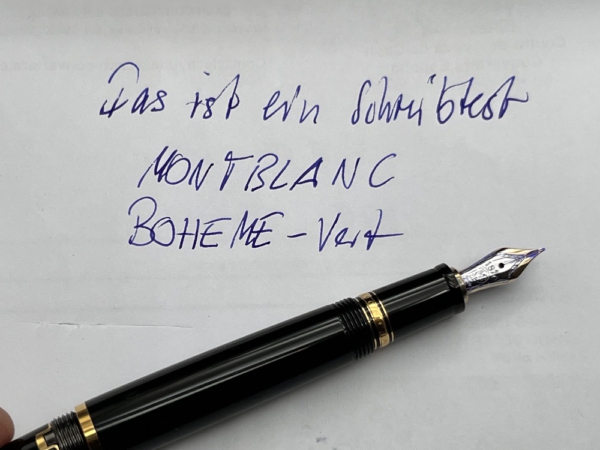 Das ist ein Schreibtest
MONTBLANC
BOHEME - Vert